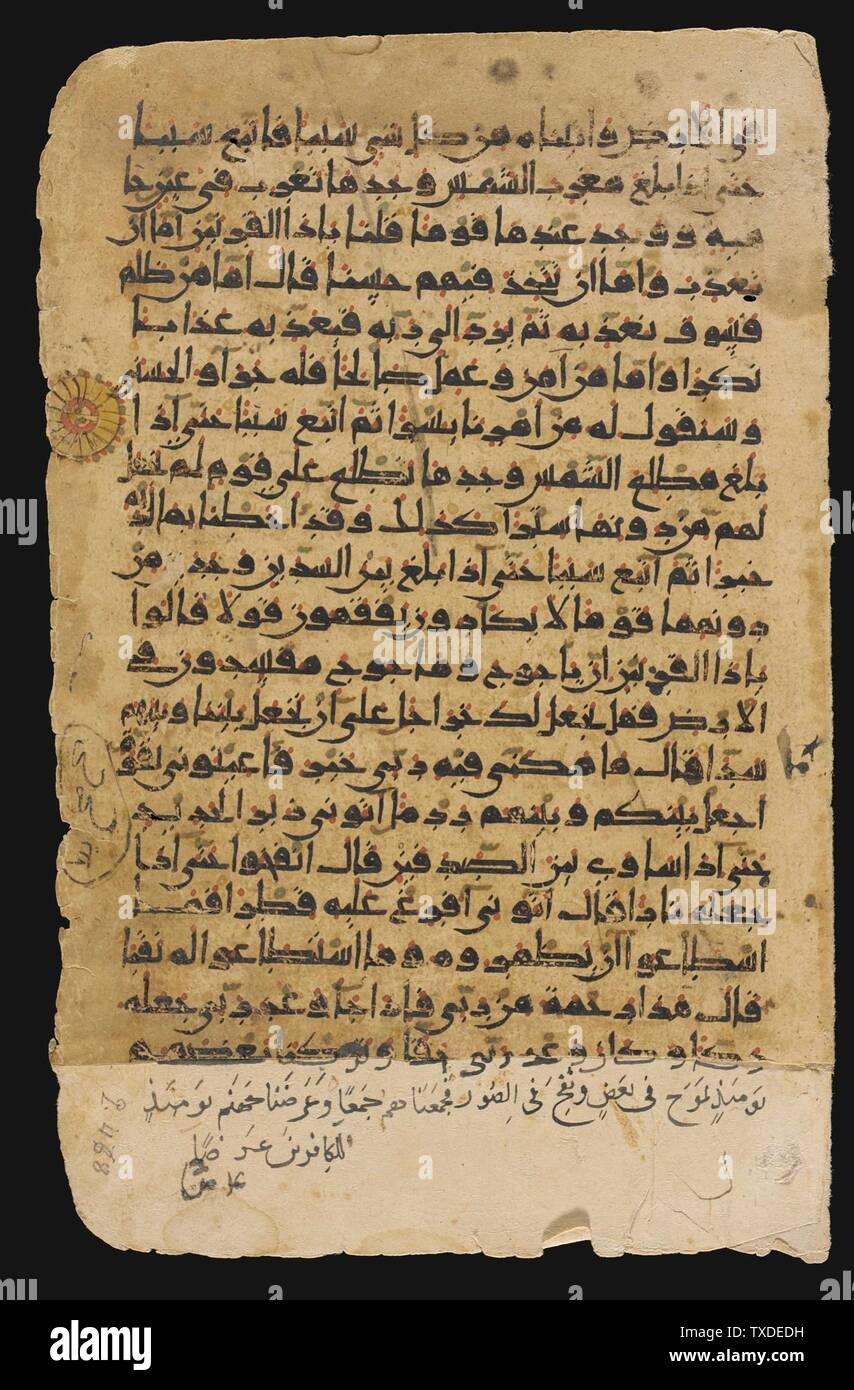 في الارض واتيناه من كل شي سببا فاتبع سببا
حتى اذا بلغ مغرب الشمس وجدها تغرب في عين حا
ميه ووجد عندها قوما قلنا ياذا القرنين اما ان
تعذب واما ان تتخذ فيهم حسنا قال اما من ظلم
فسوف نعذبه ثم يرد الى ربه فيعذبه عذابا
نكرا واما من امن وعمل صالحا فله جزاو الحسنى
وسنقول له من امرنا يسرا ثم اتبع سببا حتى اذا
بلغ مطلع الشمس وجدها تطلع على قوم لم نجعل
لهم من دونها سترا كذلك وقد احطنا بما لديه
خبرا ثم اتبع سببا حتى اذا بلغ بين السدين وجد من
دونهما قوما لا يكادون يفقهون قولا قالوا
ياذا القرنين ان ياجوج وماجوج مفسدون في
الارض فهل نجعل لك خراجا على ان تجعل بيننا وبينهم
سدا قال ما مكني فيه ربي خير فاعينوني بقوة
اجعل بينكم وبينهم ردما اتوني زبر الحديد
حتى اذا ساوى بين الصدفين قال انفخوا حتى اذا
جعله نارا قال اتوني افرغ عليه قطرا فما
اسطاعوا ان يظهروه وما استطاعوا له نقبا
قال هذا رحمة من ربي فاذا جا وعد ربي جعله
دكا وكان وعد ربي حقا وتركنا بعضهم
يومَئذٍ يموج في بعضٍ ونُفِخَ في الصُور فجمعناهم جمعًا وعَرَضنا جهنم يومئذٍ
للكافرين عرضًا
alamy
Image ID: TXDEDH
www.alamy.com